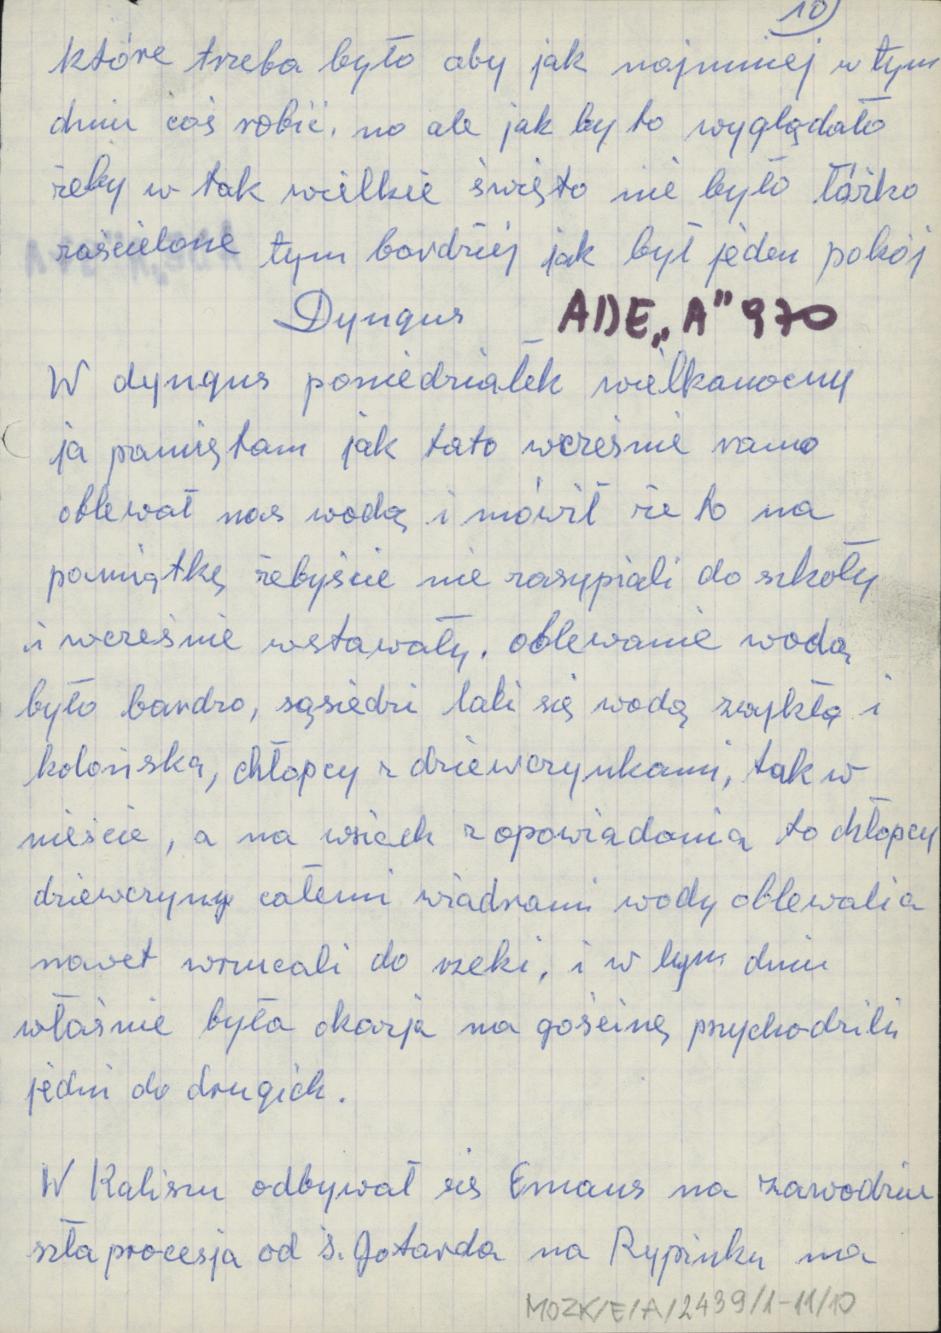 10)
które trzeba było aby jak najmniej w tym
dniu coś robić. no ale jak by to wyglądało
żeby w tak wielkie święto nie było łóżko
zaścielone tym bardziej jak był jeden pokój
Dyngus ADE„A" 970
W dyngus poniedziałek wielkanocny
ja pamiętam jak tato wcześnie rano
oblewał nas wodą i mówił że to na
pamiątkę żebyście nie zasypiali do szkoły
i wcześnie wstawały. oblewanie wodą
było bardzo, sąsiedzi lali się wodą zwykłą i
kolońską, chłopcy z dziewczynkami, tak w
mieście, a na wsiach z opowiadania to chłopcy
dziewczyny całemi wiadrami wody oblewali a
nawet wrzucali do rzeki, i w tym dniu
właśnie była okazja na gościnę przychodzili
jedni do drugich.
W Kaliszu odbywał się Emaus na Zawodziu
szła procesja od ś. Gotarda na Rypinku na
MOZK/E/A/2439/1-11/10